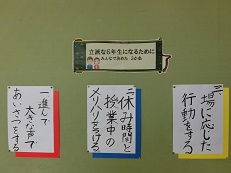 立派な6年生になるために
みんなで決めた 3か条
一進んで
大きな声で
あいさつをする
二休み時間と
授業中の
メリハリをつける
三場に応じた
行動をする